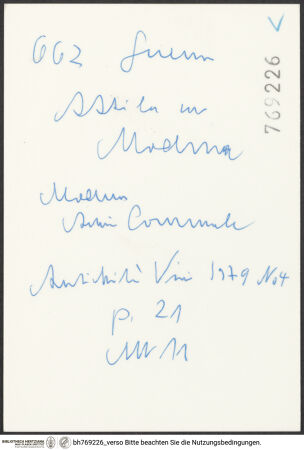 002 Guerra
769226
Attila in
Modena
Modena
Arch. Comunale
Antichità Viva 1979 No 4
p. 21
BIBLIOTHECA HERTZIANA bh769226_verso Bitte beachten Sie die Nutzungsbedingungen.